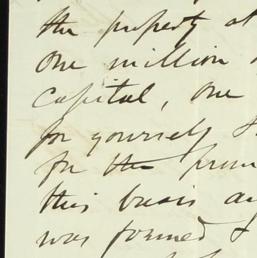 the property at
One million
Capital, one
for yourself &
for the
this basis
was formed &